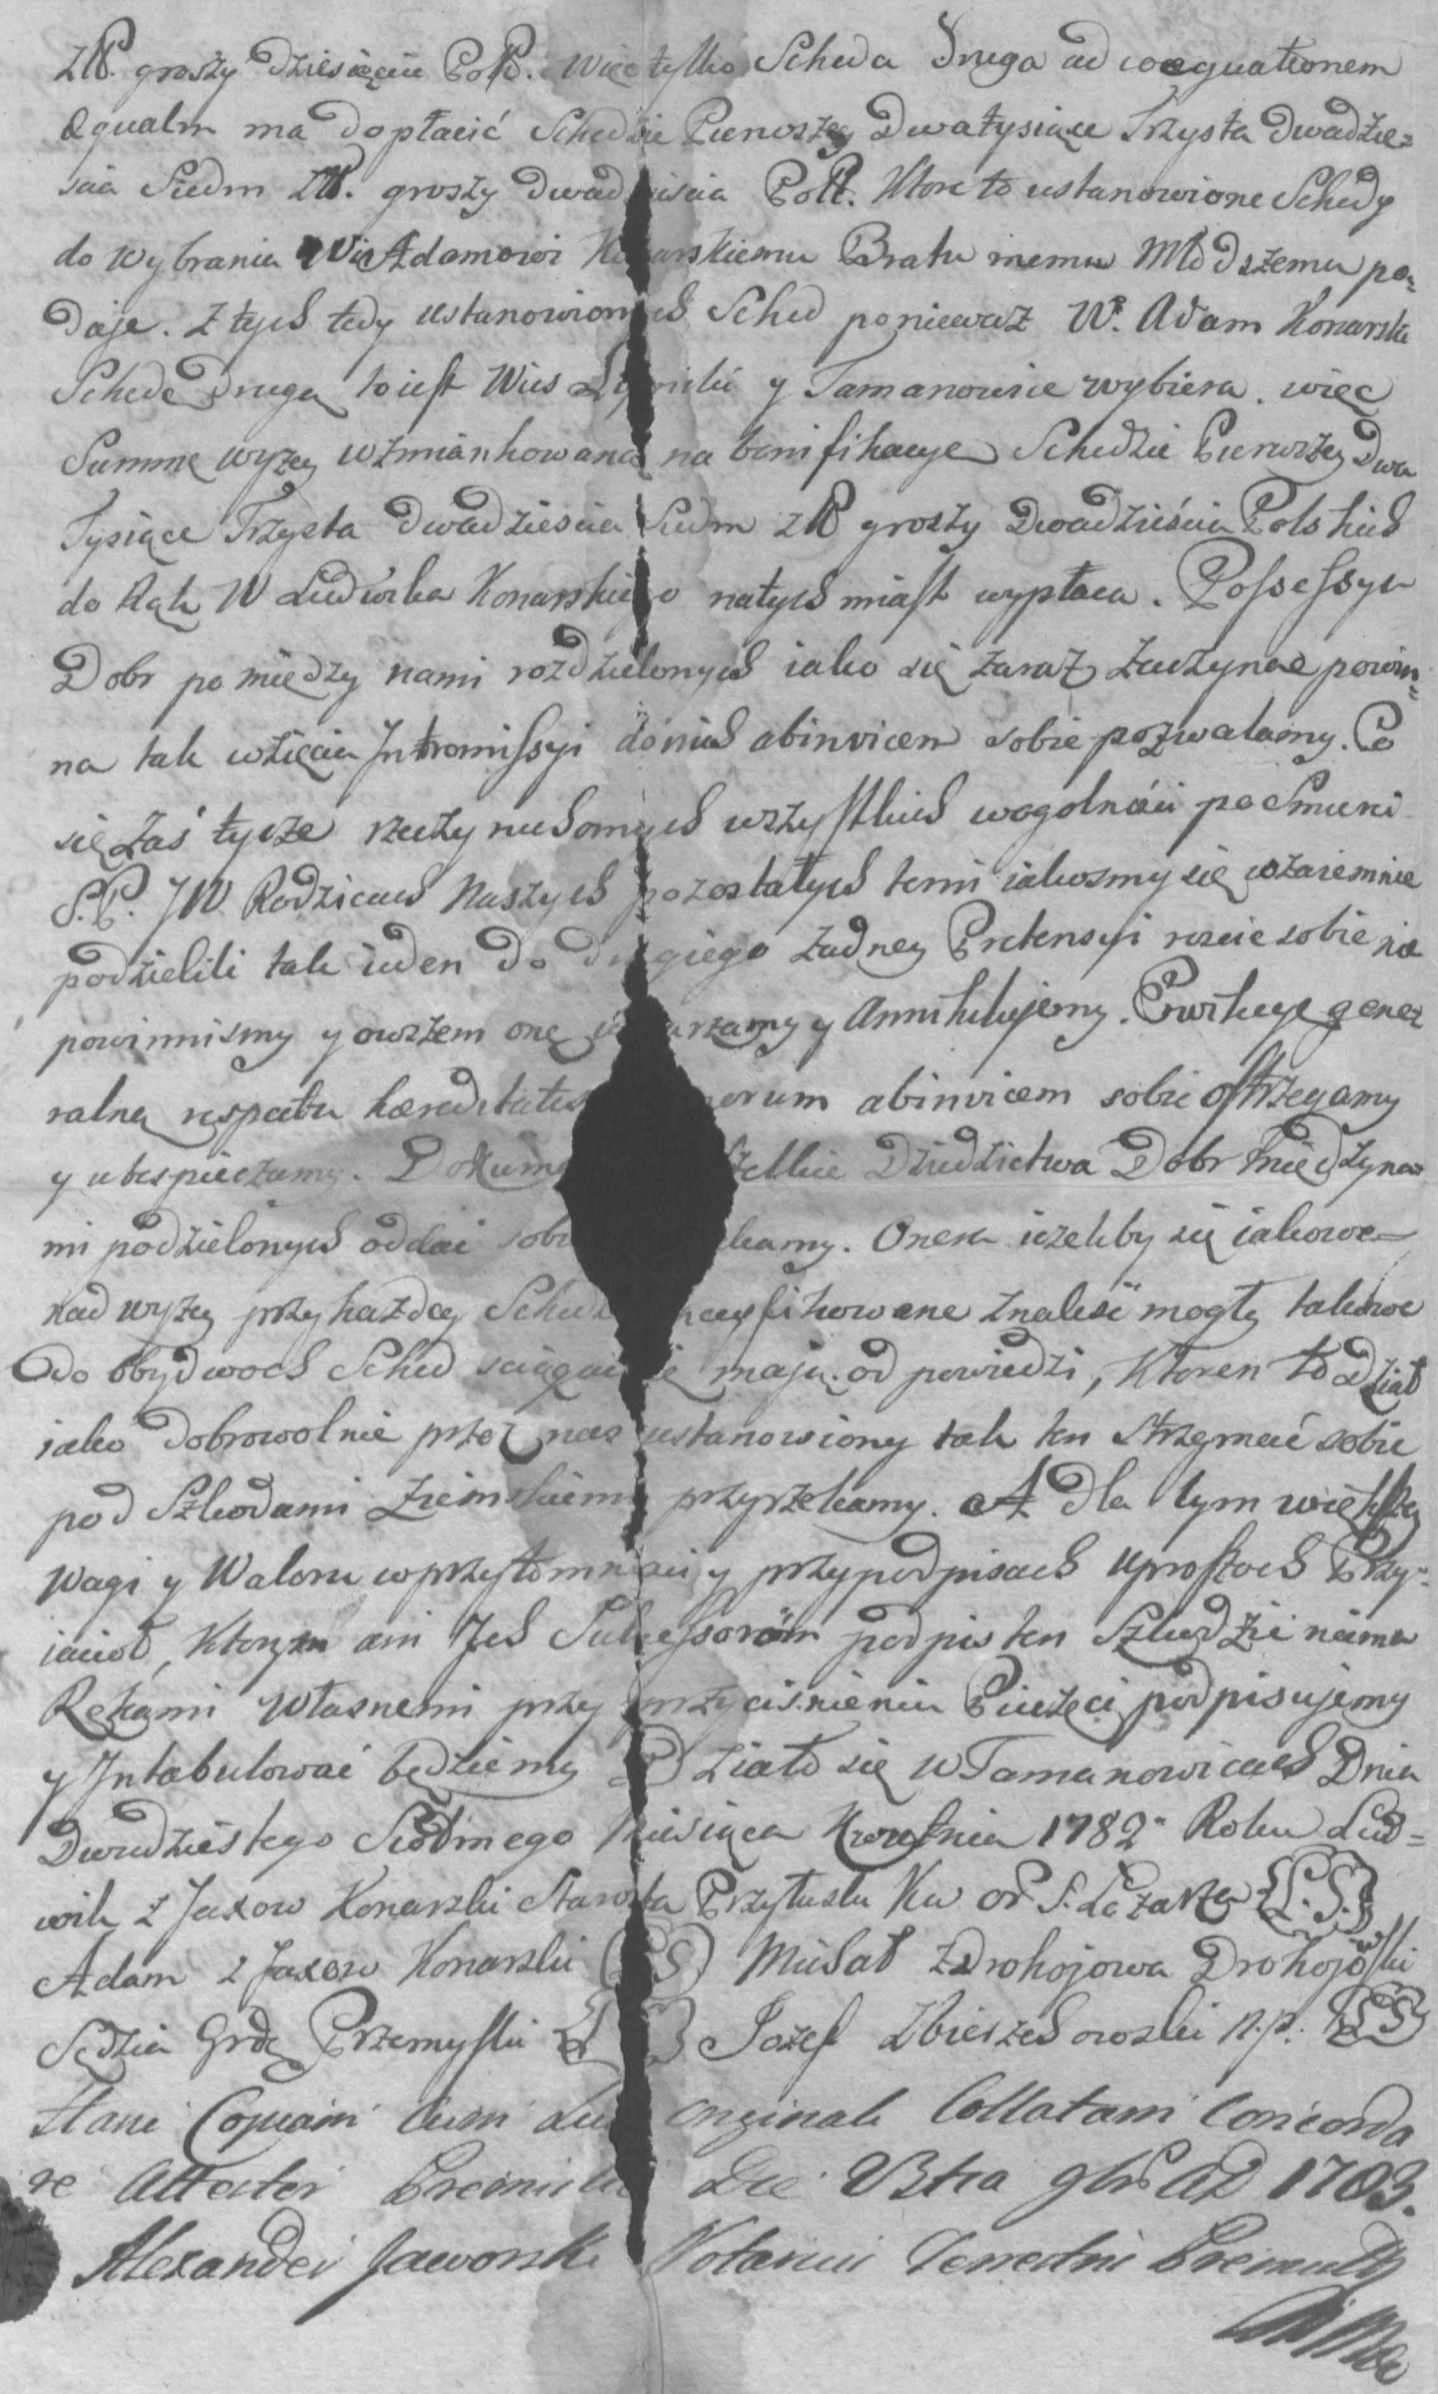 ZłP. groszy dziesięcie PolP. więc tylko Scheda Druga ad coaequationem
aequalm ma dopłacić Schedzie Pierwszey Dwa tysiące Trzysta dwadzie=
scia Siedm ZłP. groszy dwadziescia Poll. Ktore to ustanowione Schedy
do wybrania W Adamowi Konarskiemu Bratu memu Młodszemu po=
daje. Z tych tedy ustanowionych Sched poniewaz W. Adam Konarski
Schedę Drugą to iest Wies y Tamanowice wybiera. więc
Summę wyzey wzmiankowaną na bonifikacye Schedzie Pierwszey Dwa
Tysiące Trzysta dwadziescia Siedm złP groszy Dwadzieścia Polskich
do Rąk W Ludwika Konarskiego natychmiast wypłaca. Possessya
Dobr pomiędzy nami rozdzielonych iako się zaraz zaczynac powin=
na tak wzięcia Intromissyi do nich abinvicem sobie pozwalamy. Co
się zaś tycze rzeczy ruchomych wszystkich wogolności po Smierci
S.P. JW Rodzicach Naszych pozostałych temi iakosmy się wzaiemnie
podzielili tak ieden do drugiego zadney Pretensyi roscie sobie nie
powinnismy y owszem onę umarzamy y Annihilujemy. Ewikcyę gene
ralną respectu haereditatis orum abinvicem sobie ostrzegamy
y ubespieczamy. Dokume zelkie Dziedzictwa Dobr miedzy na
mi podzielonych oddać sobie kamy. Onera iezeliby się iakowe
nad wyzey przy kazdey Schedzie cyfikowane znalesć mogły takowe
do obydwoch Sched sciągać się mają odpowiedzi, Ktoren to Dział
iako dobrowolnie przez nas ustanowiony tak ten strzymać sobie
pod Szkodami Ziemskiemi przyrzekamy. A dla tym większey
Wagi y Waloru w przytomności y przy podpisach uproszoch Przy=
iacioł, Ktorym ani Jch Sukcessorom podpis ten Szkodzić niema
Rękami Własnemi przy przycisnieniu Pieczęci podpisujemy
y Intabulować będziemy Działo się w Tamanowicach Dnia
Dwudziestego Siodmego Miesiąca Kwietnia 1782 Roku Lud=
wik z Jaxow Konarski Starosta Przyłuski Kw Or S. Łazarza (L.S.)
Adam z Jaxow Konarski (LS) Michał z Drohojowa Drohojowski
Sędzia Grdz Przemyslki (L ) Jozef Zbierzchowski m.p. (LS)
Hanc Copiam cum suo Originali Collatam Concorda
re Attestor Premisliae Die 8bris AD 1783.
Alexander Jaworski Notarius Terrestris Premisl